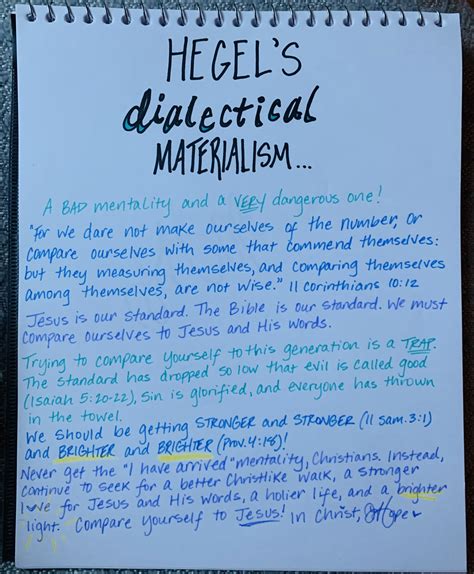 HEGEL'S
dialectical
MATERIALISM...
A BAD mentality and a VERY dangerous one!
"For we dare not make ourselves of the number, or
compare ourselves with some that commend themselves:
but they measuring themselves, and comparing themselves
among themselves, are not wise." II Corinthians 10:12
Jesus is our standard. The Bible is our standard. We must
compare ourselves to Jesus and His words.
Trying to compare yourself to this generation is a TRAP.
The standard has dropped so low that evil is called good
(Isaiah 5:20-22), sin is glorified, and everyone has thrown
in the towel.
We should be getting STRONGER and STRONGER (II Sam. 3:1)
and BRIGHTER and BRIGHTER (Prov. 4:18)!
Never get the "I have arrived" mentality, Christians. Instead,
continue to seek for a better Christlike walk, a stronger
love for Jesus and His words, a holier life, and a brighter
light. Compare yourself to Jesus! In Christ, Hope